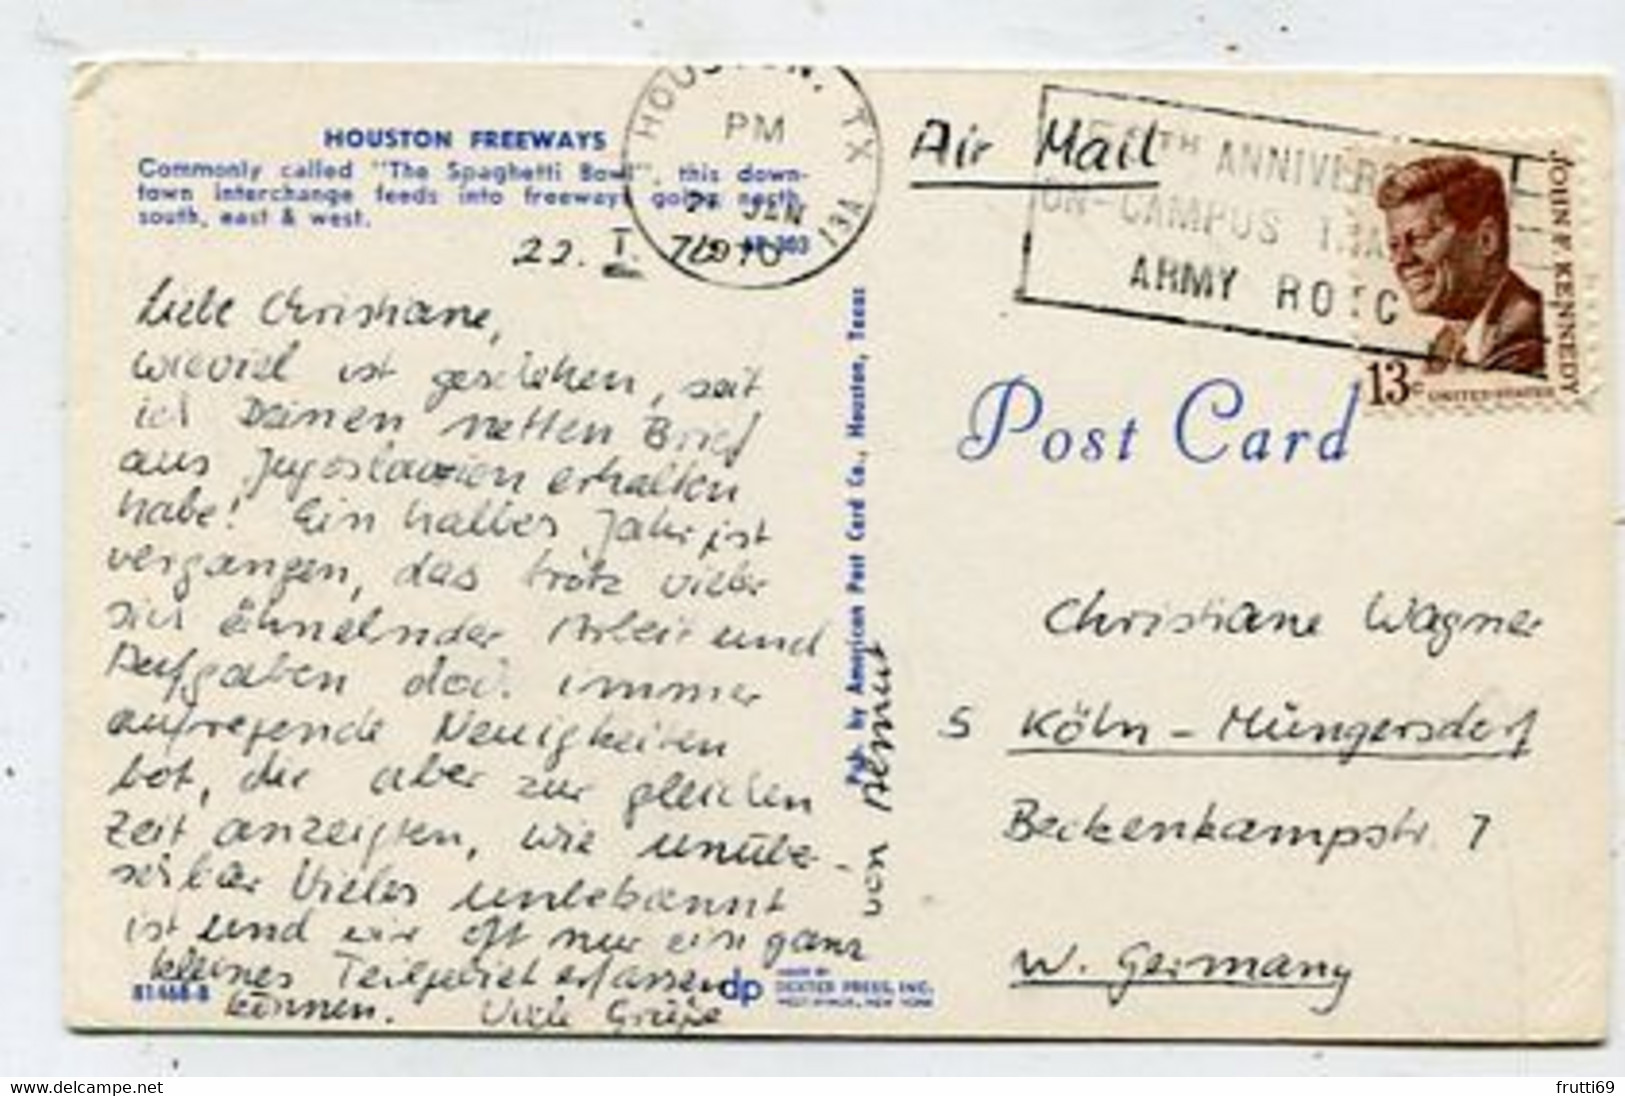 HOUSTON FREEWAYS
Commonly called "The Spaghetti Bowl", this down-
town interchange feeds into freeways going north,
south, east & west.
22. I. 1970
Liebe Christiane,
wieviel ist geschehen, seit
ich Deinen netten Brief
aus Jugoslawien erhalten
habe! Ein halbes Jahr ist
vergangen, das trotz vieler
sich ähnelnder Arbeit und
Aufgaben doch immer
aufregende Neuigkeiten
bot, die aber zur gleichen
Zeit anzeigten, wie unüber-
sehbar Vieles unbekannt
ist und wir oft nur ein ganz
kleines Teilgebiet erfassen
können. Viele Grüße
von Helmut
81468-B
dp
DEXTER PRESS, INC.
WEST NYACK, NEW YORK
Pub. by American Post Card Co., Houston, Texas
HOUSTON, TX
PM
JAN
Air Mail
TH ANNIVERS
ON-CAMPUS TRA
ARMY ROTC
JOHN F. KENNEDY
13c
UNITED STATES
Post Card
Christiane Wagner
5 Köln - Müngersdorf
Beckenkampstr. 7
W. Germany
www.delcampe.net
frutti69